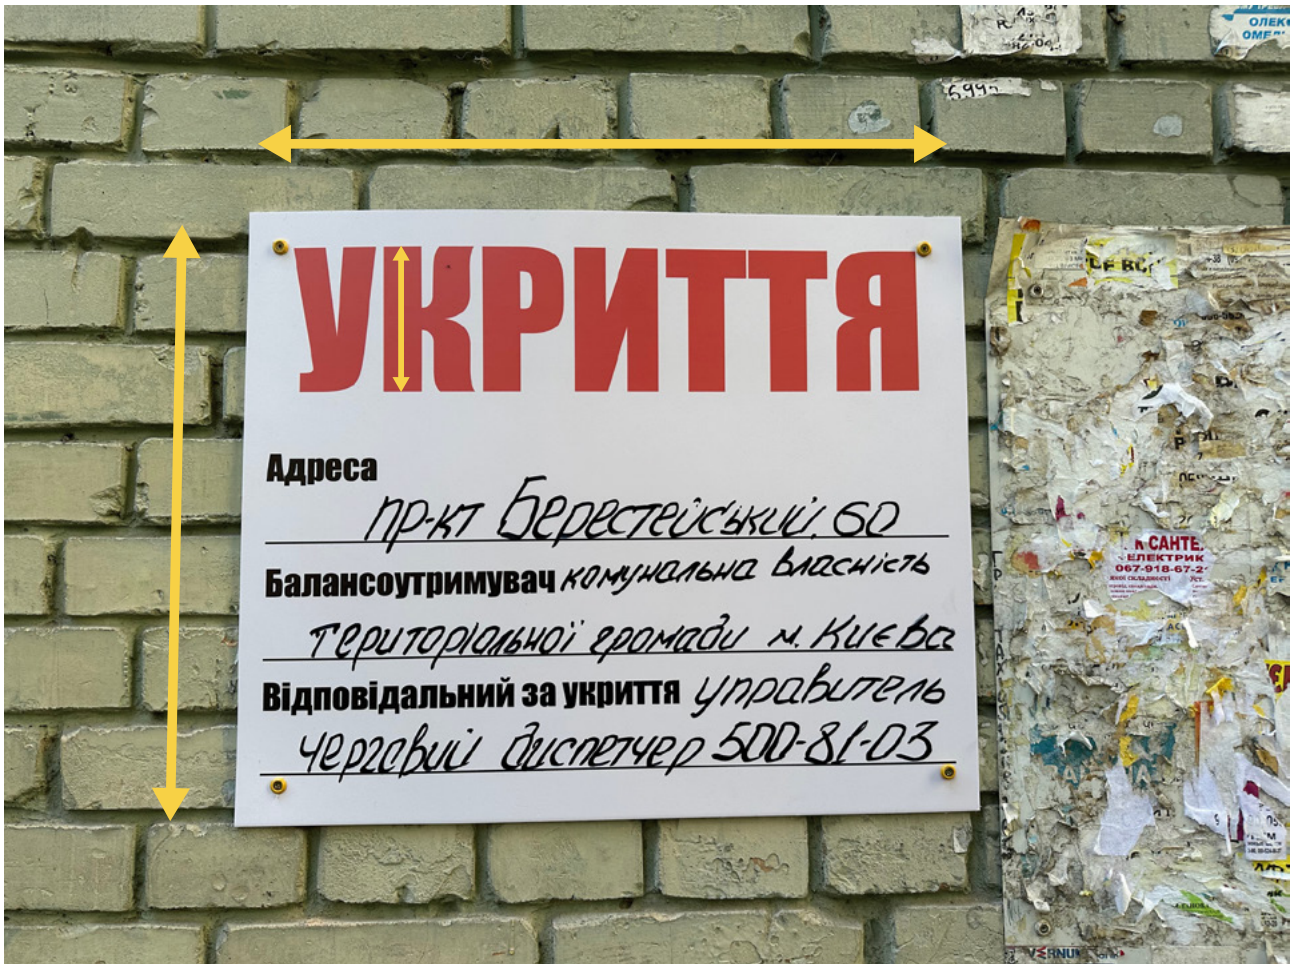 УКРИТТЯ
Адреса
пр-кт Берестейський, 60
Балансоутримувач комунальна власність
територіальної громади м. Києва
Відповідальний за укриття управитель
черговий диспетчер 500-81-03
ОЛЕК
ОМЕЛ
5995
К САНТЕ
ЕЛЕКТРИК
067-918-67-2
VERNUM